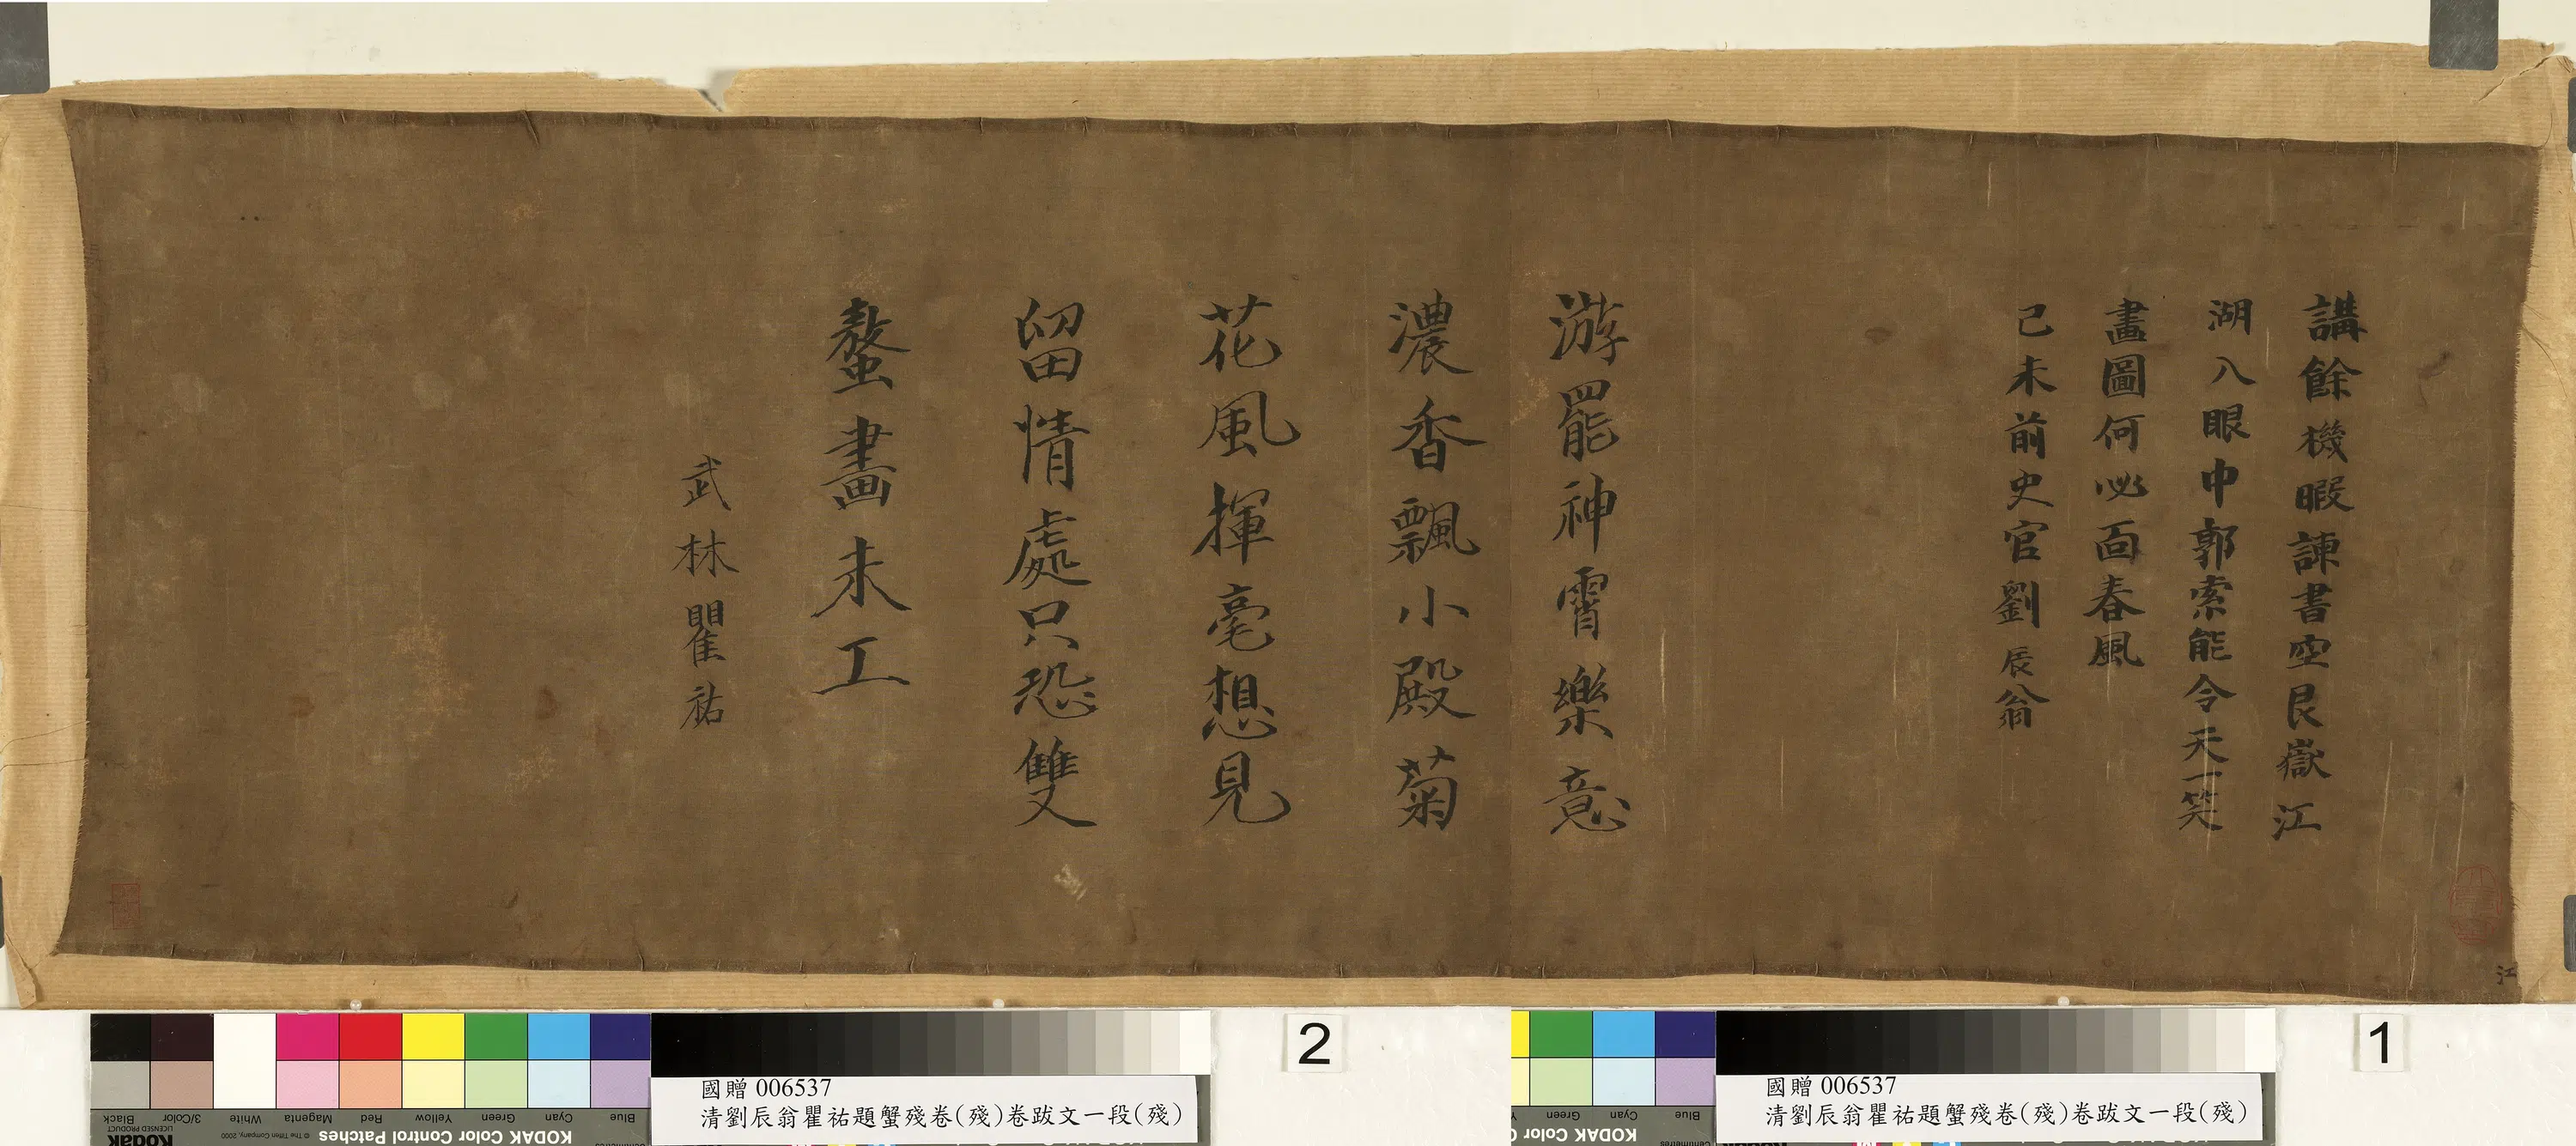 講餘機暇諫書空艮嶽江
湖八眼中郭索能令天一笑
畫圖何必面春風
己未前史官劉辰翁
游罷神霄樂意
濃香飄小殿菊
花風揮毫想見
留情處只恐雙
螯畫未工
武林瞿祐
江
2
1
國贈 006537
清劉辰翁瞿祐題蟹殘卷(殘)卷跋文一段(殘)
Black
3/Color
White
Magenta
Red
Yellow
Green
Cyan
Blue
Kodak
LICENSED PRODUCT
KODAK Color Control Patches
© The Tiffen Company, 2000
國贈 006537
清劉辰翁瞿祐題蟹殘卷(殘)卷跋文一段(殘)
Green
Cyan
Blue
KODAK Color Control Patches